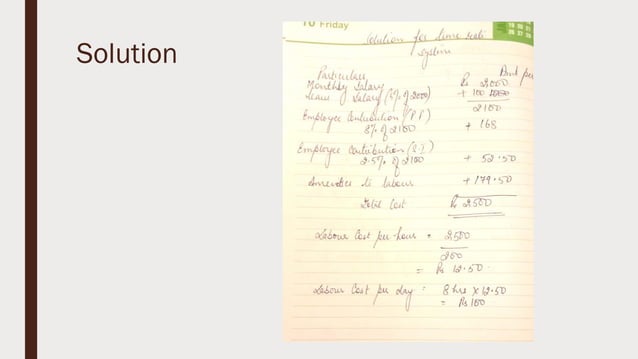 Solution
10 Friday
Solution for time rate
system
Particulars Amt per
Monthly Salary Rs 2000
Leave Salary (5% of 2000) + 100
2100
Employee Contribution (P.F)
8% of 2100 + 168
Employee Contribution
2.5% of 2100 + 52.50
Amenities to labour + 179.50
Total Cost Rs 2500
Labour Cost per hour = 2500
200
= Rs 12.50
Labour Cost per day = 8 hrs × 12.50
= Rs 100